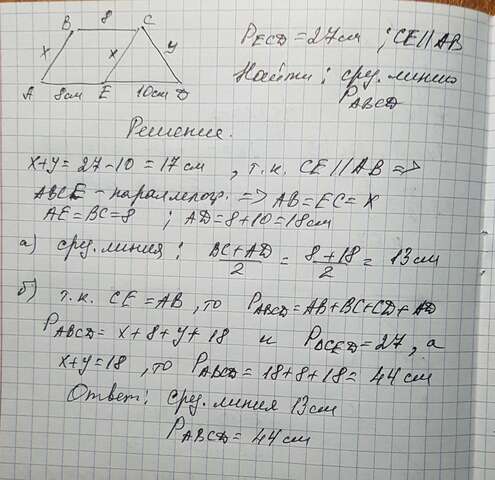 B 8 C
x x y
A 8см E 10см D
P ECD = 27см ; CE || AB
Найти: сред. линию
P ABCD
Решение.
x+y = 27-10 = 17 см , т.к. CE || AB =>
ABCE - параллелогр. => AB = EC = x
AE = BC = 8 ; AD = 8+10 = 18см
а) сред. линия: BC+AD/2 = 8+18/2 = 13см
б) т.к. CE = AB, то P ABCD = AB+BC+CD+AD
P ABCD = x+8+y+18 и P DCED = 27, а
x+y = 18, то P ABCD = 18+8+18 = 44 см
Ответ: сред. линия 13см
P ABCD = 44 см